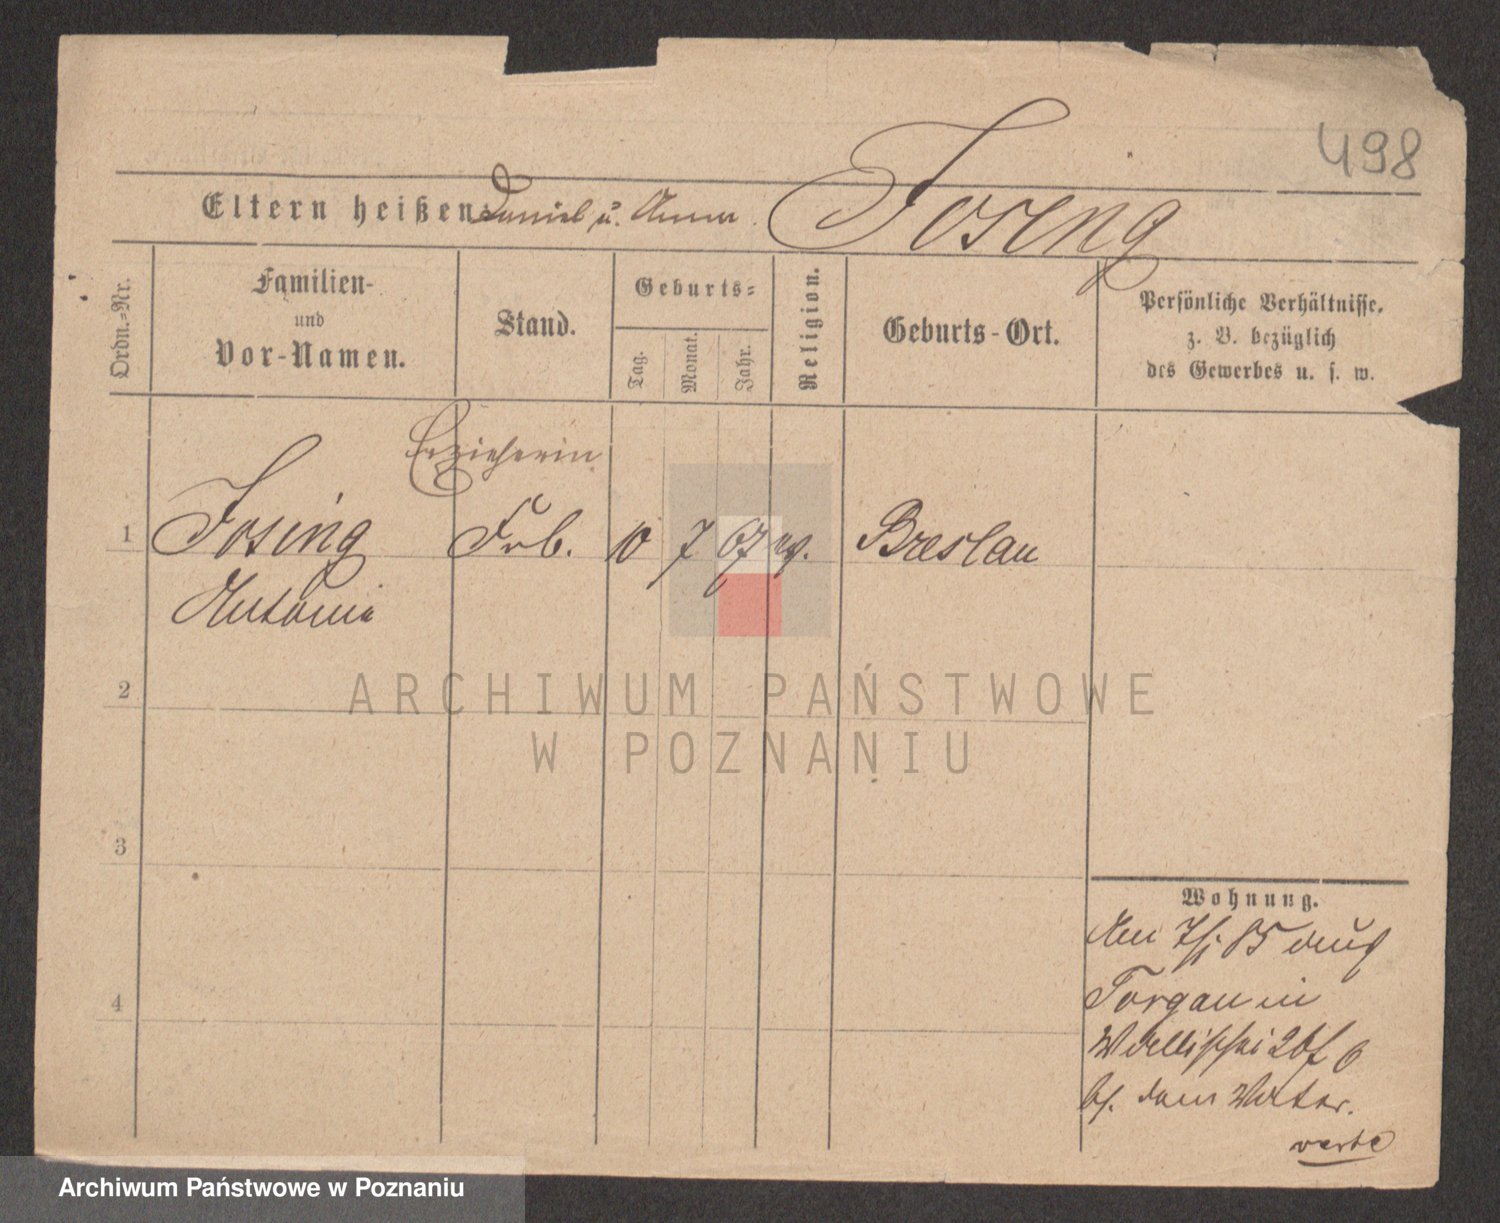 498
Eltern heißen: Daniel u. Anna. Josing
Ordn.-Nr.
Familien-
und
Vor-Namen.
Stand.
Geburts-
Tag.
Monat.
Jahr.
Religion.
Geburts-Ort.
Persönliche Verhältnisse,
z. B. bezüglich
des Gewerbes u. s. w.
Erzieherin
1 Josing 10 7 67 Breslau
Antonie
2
3
4
Wohnung.
85
Torgau in
6
dem Vater.
verte
ARCHIWUM PAŃSTWOWE
W POZNANIU
Archiwum Państwowe w Poznaniu